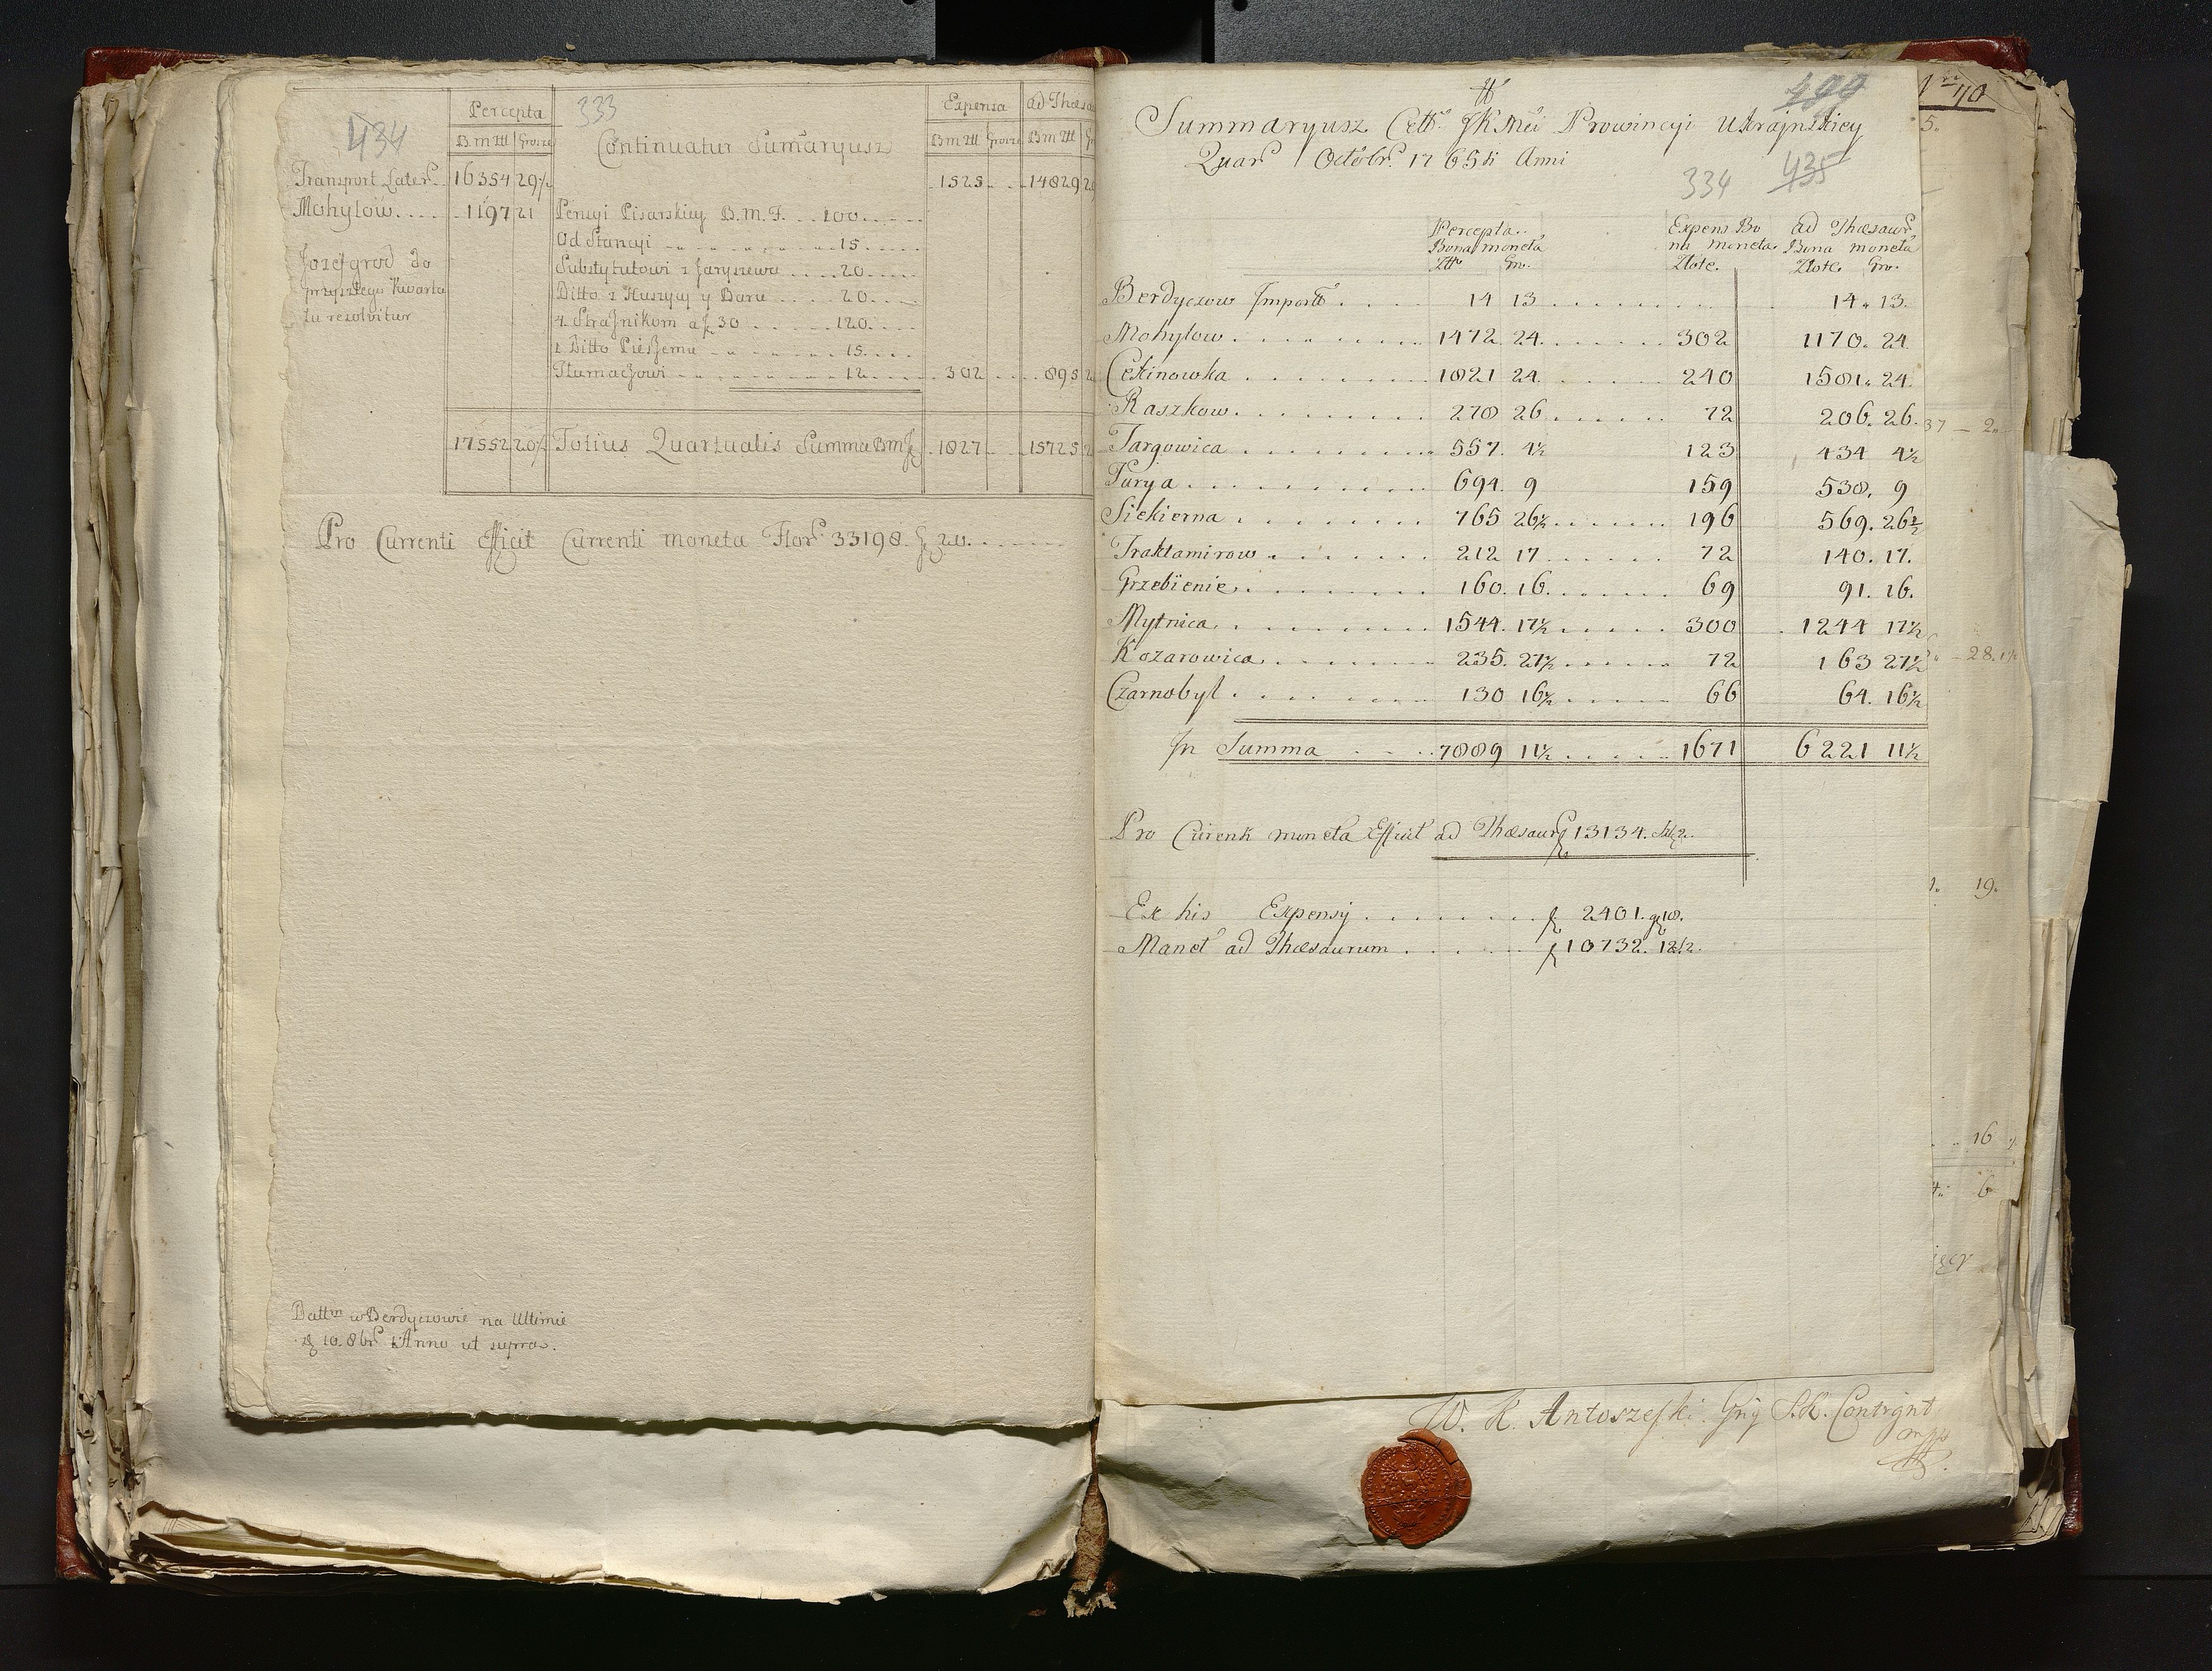 434
333
Percepta
Expensa
ad Thesa
B.m Ztł Grosze
Continuatur Sumaryusz
B.m Ztł Grosze
B.m Ztł
Transport Later. 16354 29½ 1525 14829 2
Mohylow.... 1197 21 Pensyi Pisarskiey B.m.F... 100.....
Od Stancyi 15....
Jozefgrod do
przyszłego Kwarta
łu rezolvitur
Substytutowi z Jaryszewa .... 20....
Ditto z Huszyey y Baru .... 20....
4. Strażnikom a f 30 ..... 120....
1 Ditto Pieszemu 15....
Tłumaczowi 12.... 302 ... 895 2
17552 20½ Totius Quartualis Summa B.m.f. 1827 15725 2
Pro Currenti Efficit Currenti moneta Flor. 33198. g 20......
Dattm w Berdyczowie na Ultimie
10. 8br Anno ut supra.
435
334
Summaryusz Cełł JKMci Prowincyi Ukrajnskiey
Quar Octobr. 1765ti Anni
Percepta.. Expens. Bo ad Thesaur
Bona moneta na moneta. Bona moneta
Ztt Gr. Złote. Złote. Gr.
Berdyczow Import ..... 14 13 ........ 14. 13.
Mohylow ........ 1472. 24........ 302 1170. 24
Cekinowka ........ 1821 24........ 240 1581. 24.
Raszkow ........ 278 26...... 72 206. 26.
Targowica ........ 557. 4½ 123 434 4½
Turya ........ 694. 9 159 538. 9
Siekierna ........ 765 26½...... 196 569. 26½
Traktamirow ....... 212 17...... 72 140. 17.
Grzebienie ........ 160. 16....... 69 91. 16.
Mytnica ........ 1544. 17½...... 300 1244 17½
Kozarowica ........ 235. 27½...... 72 163 27½
Czarnobyl ........ 130 16½...... 66 64. 16½
In Summa ..... 7889 11½...... 1671 6221 11½
Pro Curenk moneta Efficit ad Thesaur f 13134.
Ex his Expensy ........ f 2401. g 18.
Manet ad Thesaurum ...... f 10732. 12½.
W. K. Antoszeski
37 — 2
28. 1½
19.
16
6